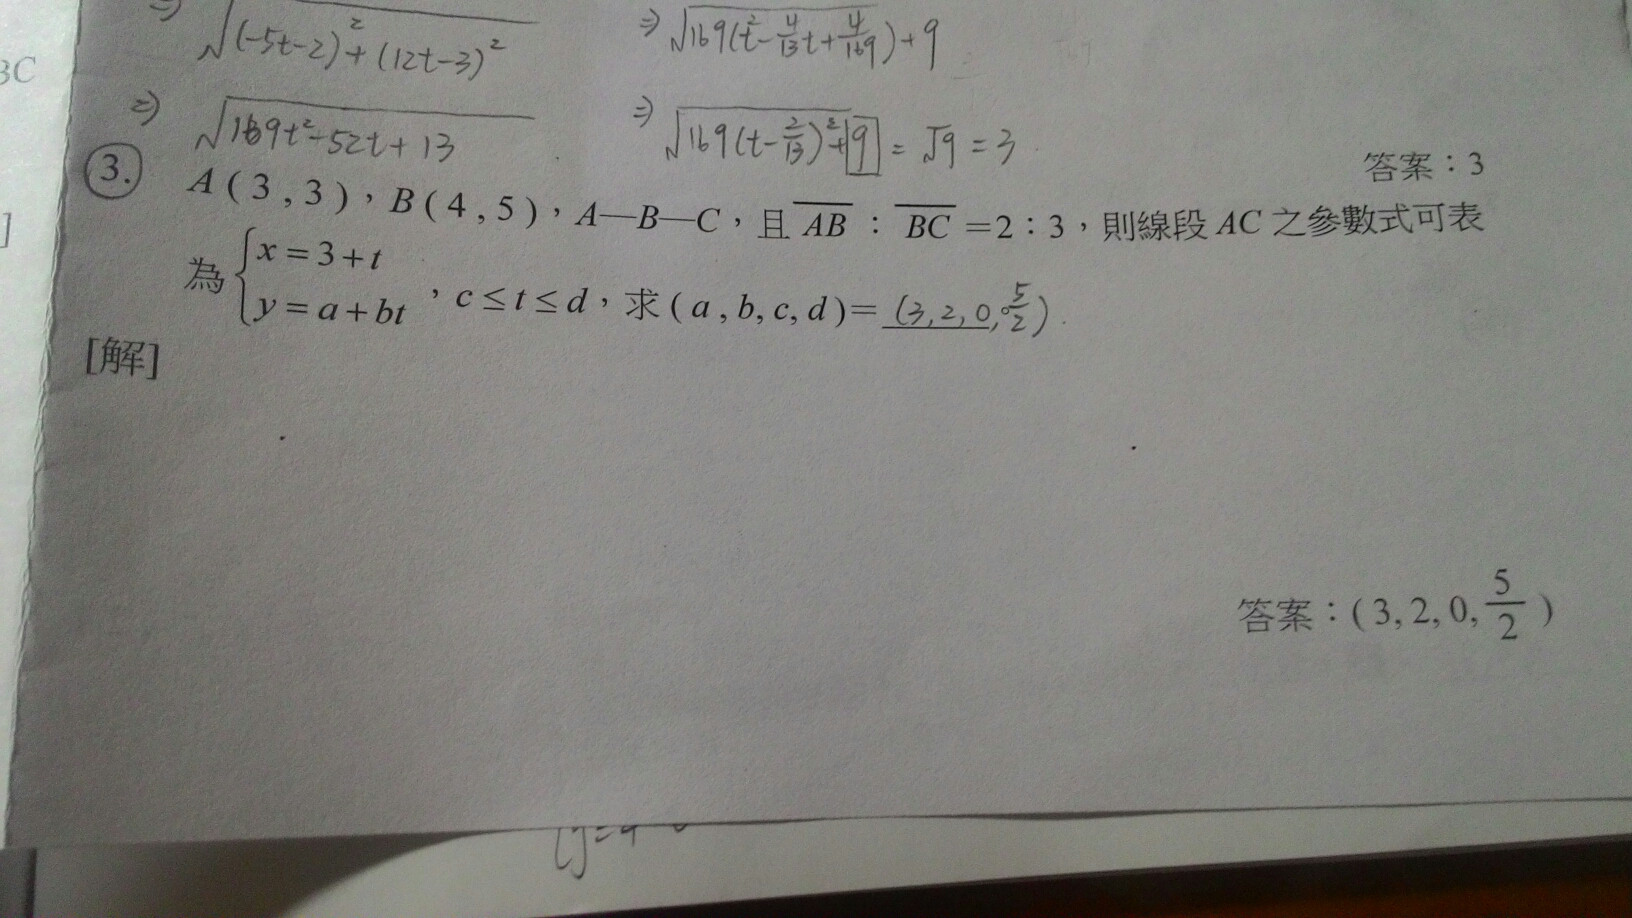 BC
⇒ √(-5t-2)²+(12t-3)²
⇒ √169(t²-4/13t+4/169)+9
⇒ √169t²-52t+13
⇒ √169(t-2/13)²+9 = √9 = 3
答案：3
3. A(3,3)，B(4,5)，A—B—C，且 AB：BC=2：3，則線段 AC 之參數式可表
為 { x=3+t
y=a+bt ，c≤t≤d，求(a,b,c,d)= (3,2,0,5/2).
[解]
答案：(3,2,0,5/2)